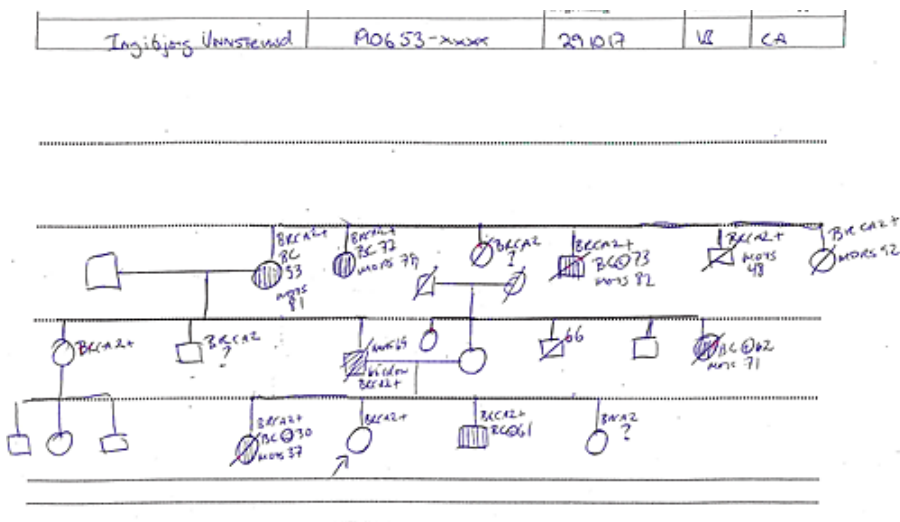 Ingibjörg
290653-xxxx
291017
CA
BRCA2+
BC
53
mors
81
BRCA2+
BC 72
mors 79
BRCA2
?
BRCA2+
BC@73
mors 82
BRCA2+
mors
48
BRCA2+
mors 92
BRCA2+
BRCA2
?
mors
BRCA2+
66
BC @62
mors 71
BRCA2+
BC@30
mors 37
BRCA2+
BRCA2+
BC@61
BRCA2
?